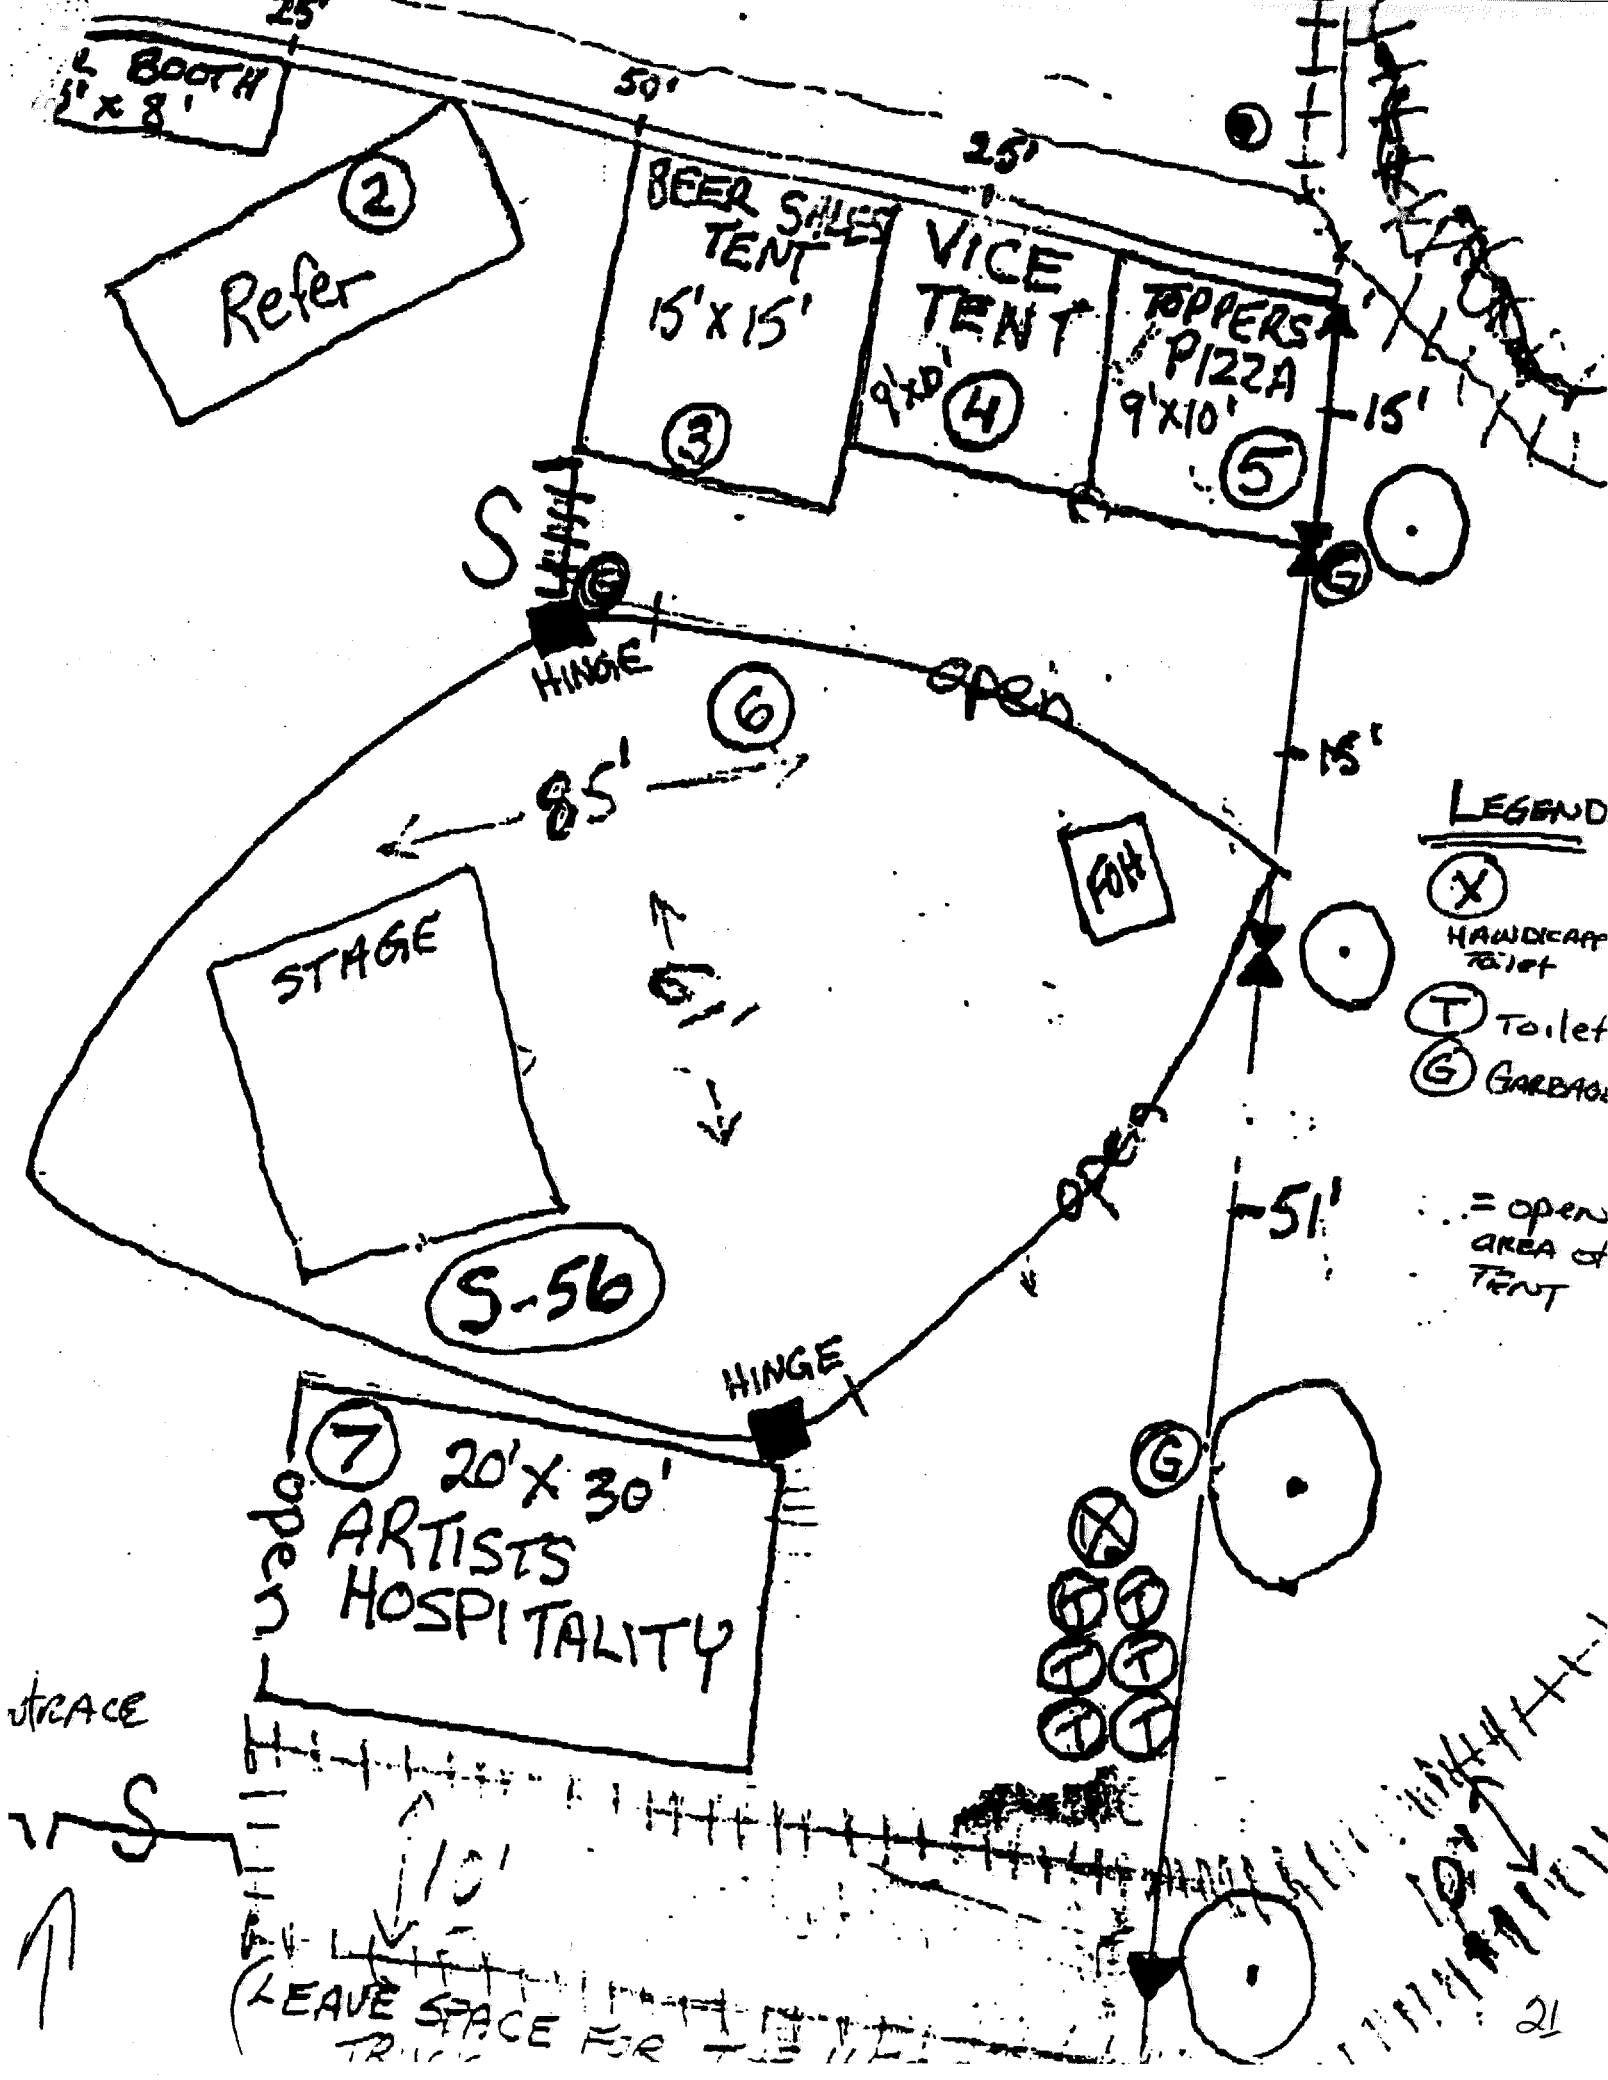 25'
BOOTH
' x 8'
50'
25'
2
Refer
BEER SALES
TENT
15' x 15'
3
VICE
TENT
4
TOPPERS
PIZZA
9' x 10'
5
15'
S
G
G
HINGE
6
open
15'
85'
FOH
STAGE
LEGEND
X
HANDICAPP
Toilet
T Toilet
G GARBAGE
51'
= open
AREA of
TENT
S-56
HINGE
7
20' x 30'
ARTISTS
HOSPITALITY
open
G
X
T T
T T
T T
TRACE
S
10'
(LEAVE SPACE FOR
21